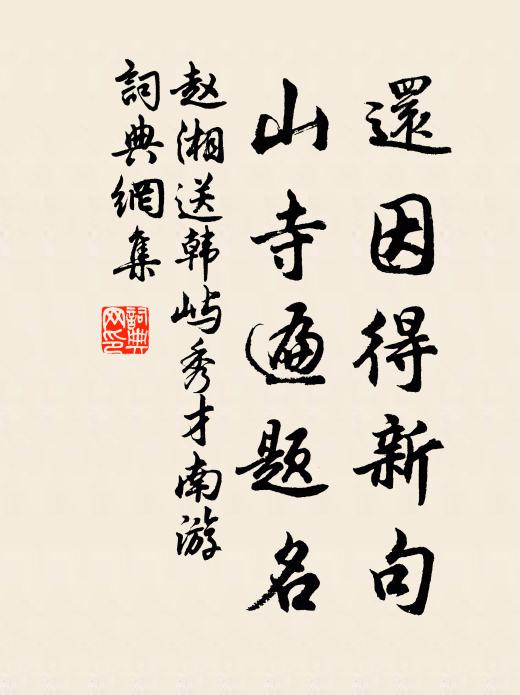 還因得新句
山寺遍题名
赵湘送韩屿秀才南游
詞典網集
詞典
网印